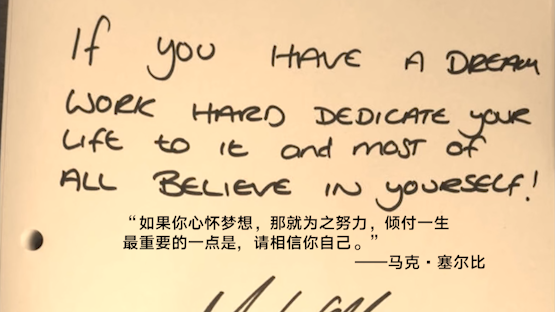 If you HAVE A DREAM
WORK HARD DEDICATE your
LIFE to it and most of
ALL BELIEVE IN yourSELF!
“如果你心怀梦想，那就为之努力，倾付一生
最重要的一点是，请相信你自己。”
——马克·塞尔比